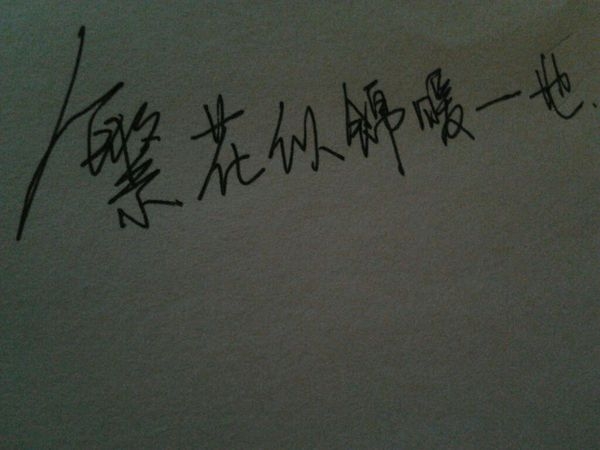 繁花似锦暖一地.